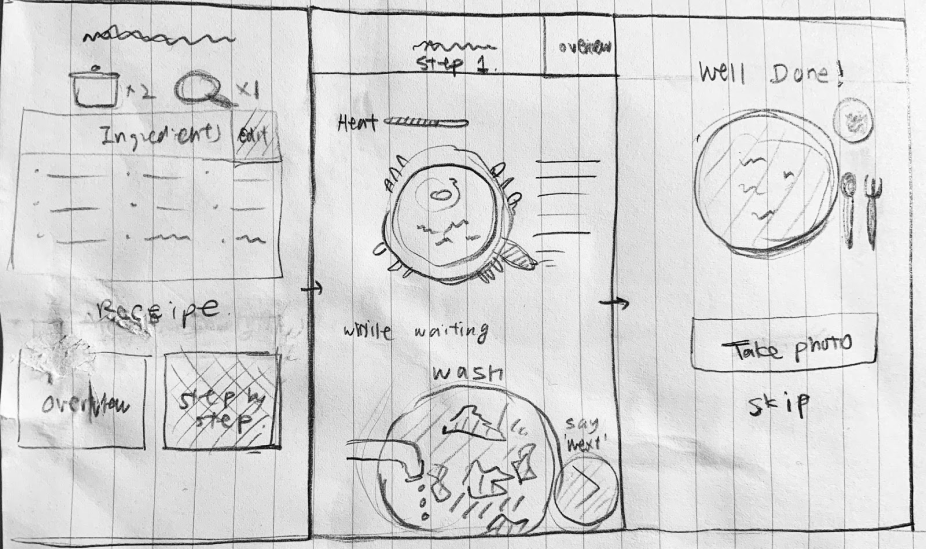 ×2
×1
Ingredients
edit
Receipe
overview
step by
step
Step 1.
overview
Heat
while waiting
wash
say
'next'
Well Done!
Take photo
skip